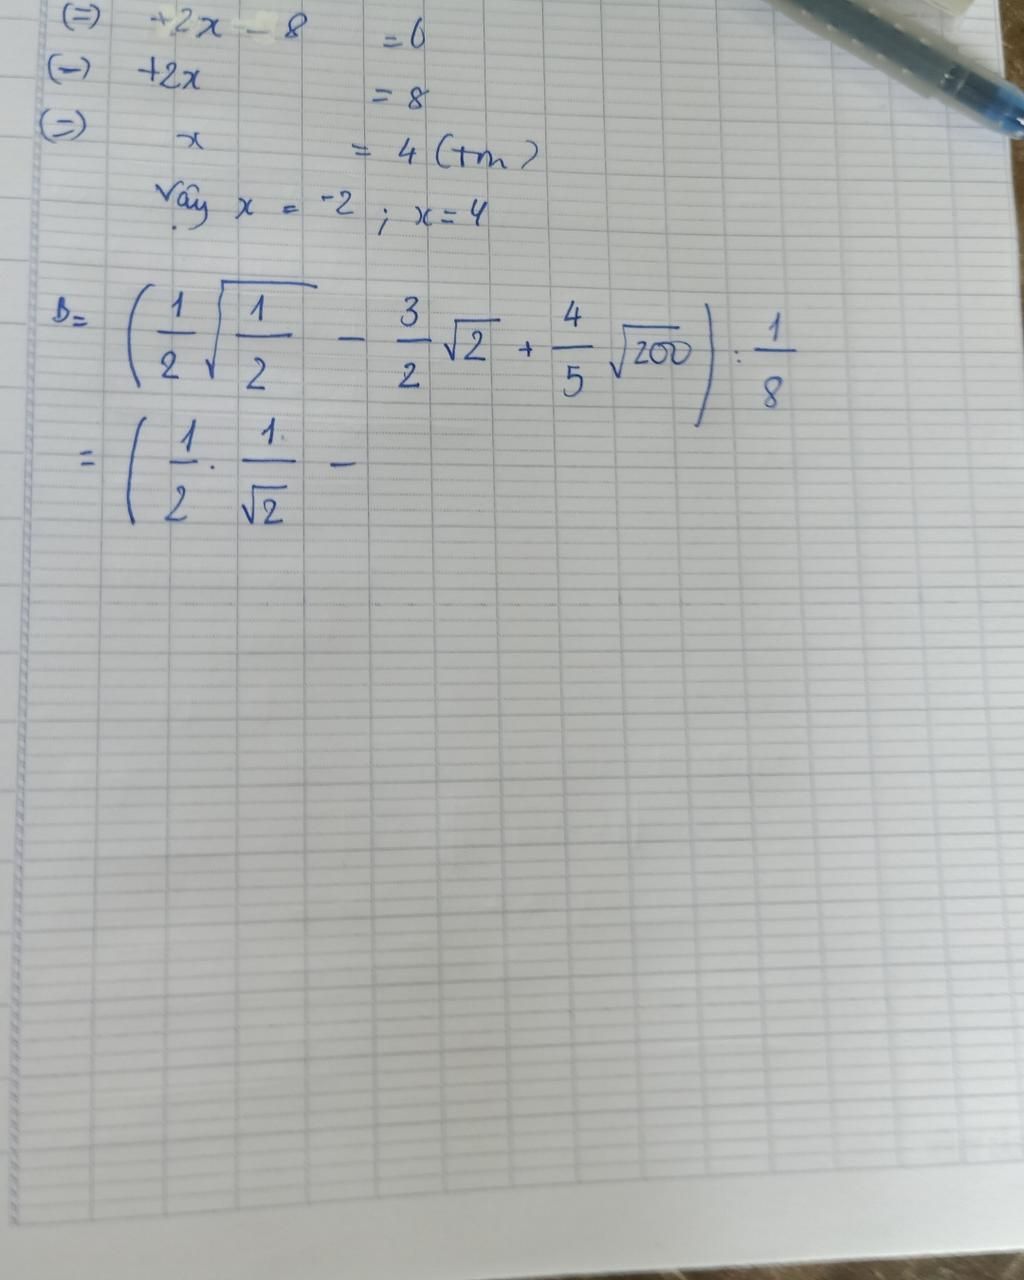 (=) +2x - 8 = 0
(=) +2x = 8
(=) x = 4 (tm)
Vậy x = -2 ; x = 4
B= ( 1/2 √(1/2) - 3/2 √2 + 4/5 √200 ) : 1/8
= ( 1/2 . 1/√2 -